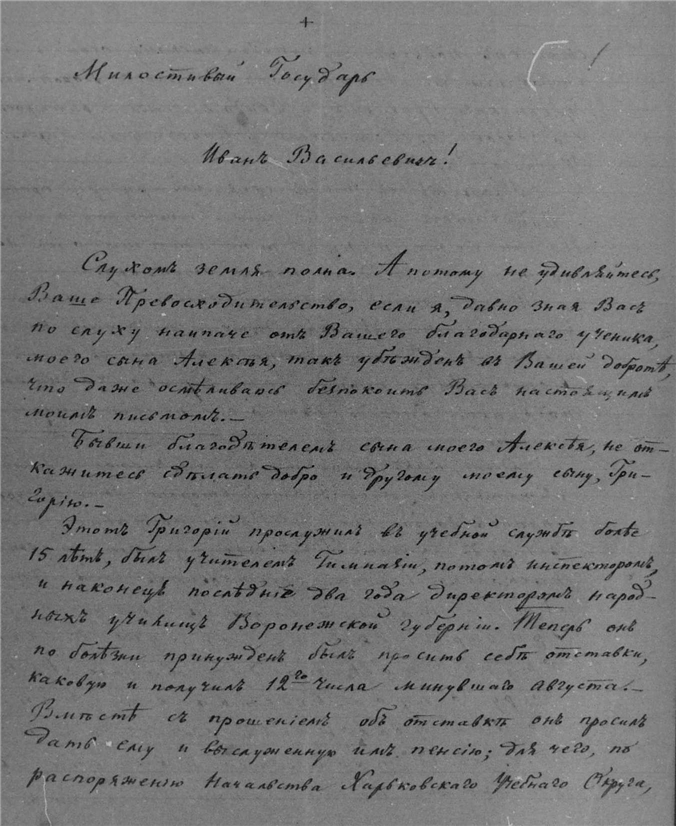 +
Милостивый Государь
Иванъ Васильевичъ!
Слухомъ земля полна. А потому не удивляйтесь,
Ваше Превосходительство, если я, давно зная Васъ
по слуху наипаче отъ Вашего благодарнаго ученика,
моего сына Алексѣя, такъ убѣжденъ въ Вашей добротѣ,
что даже осмѣливаюсь безпокоить Васъ настоящимъ
моимъ письмомъ.—
Бывши благодѣтелемъ сына моего Алексѣя, не от-
кажитесь сдѣлать добро и другому моему сыну, Гри-
горію.—
Этотъ Григорій прослужилъ въ учебной службѣ болѣе
15 лѣтъ, былъ учителемъ Гимназіи, потомъ инспекторомъ,
и наконецъ послѣдніе два года директоромъ народ-
ныхъ училищъ Воронежской губерніи. Теперь онъ
по болѣзни принужденъ былъ просить себѣ отставки,
каковую и получилъ 12го числа минувшаго Августа.—
Вмѣстѣ съ прошеніемъ объ отставкѣ онъ просилъ
дать ему и выслуженную имъ пенсію; для чего, по
распоряженію Начальства Харьковскаго Учебнаго Округа,